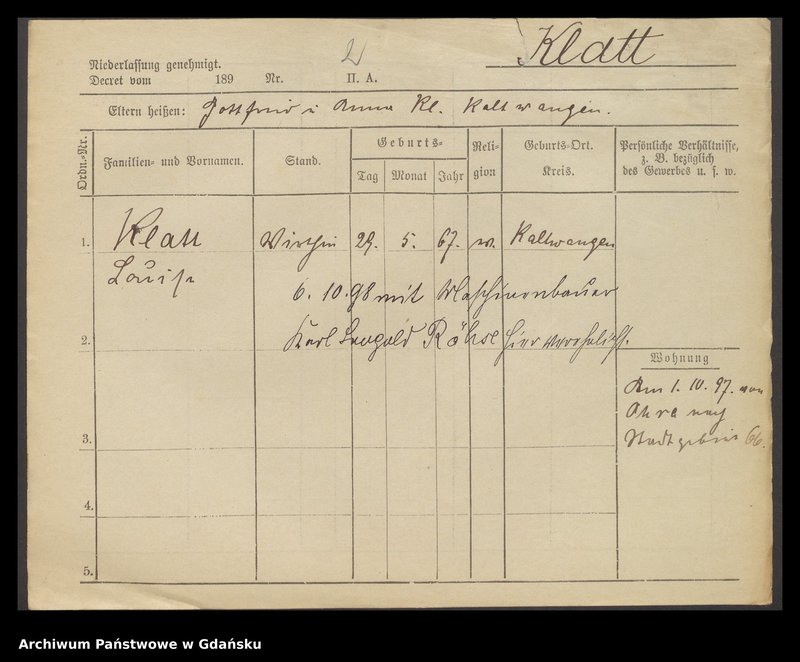 2
Klatt
Niederlassung genehmigt.
Decret vom 189 Nr. II. A.
Eltern heißen: Gottfried u Anna Kl. Kaltwangen.
Ordn.-Nr.
Familien- und Vornamen.
Stand.
Geburts-
Tag Monat Jahr
Reli-
gion
Geburts-Ort.
Kreis.
Persönliche Verhältnisse,
z. B. bezüglich
des Gewerbes u. s. w.
1. Klatt Wirthin 29. 5. 67. ev. Kaltwangen
Louise
6. 10. 98 mit Maschinenbauer
2. Karl Leopold Röhse hier verehelicht.
Wohnung
Am 1. 10. 97. von
Ohra nach
Stadtgebiet 66.
3.
4.
5.
Archiwum Państwowe w Gdańsku